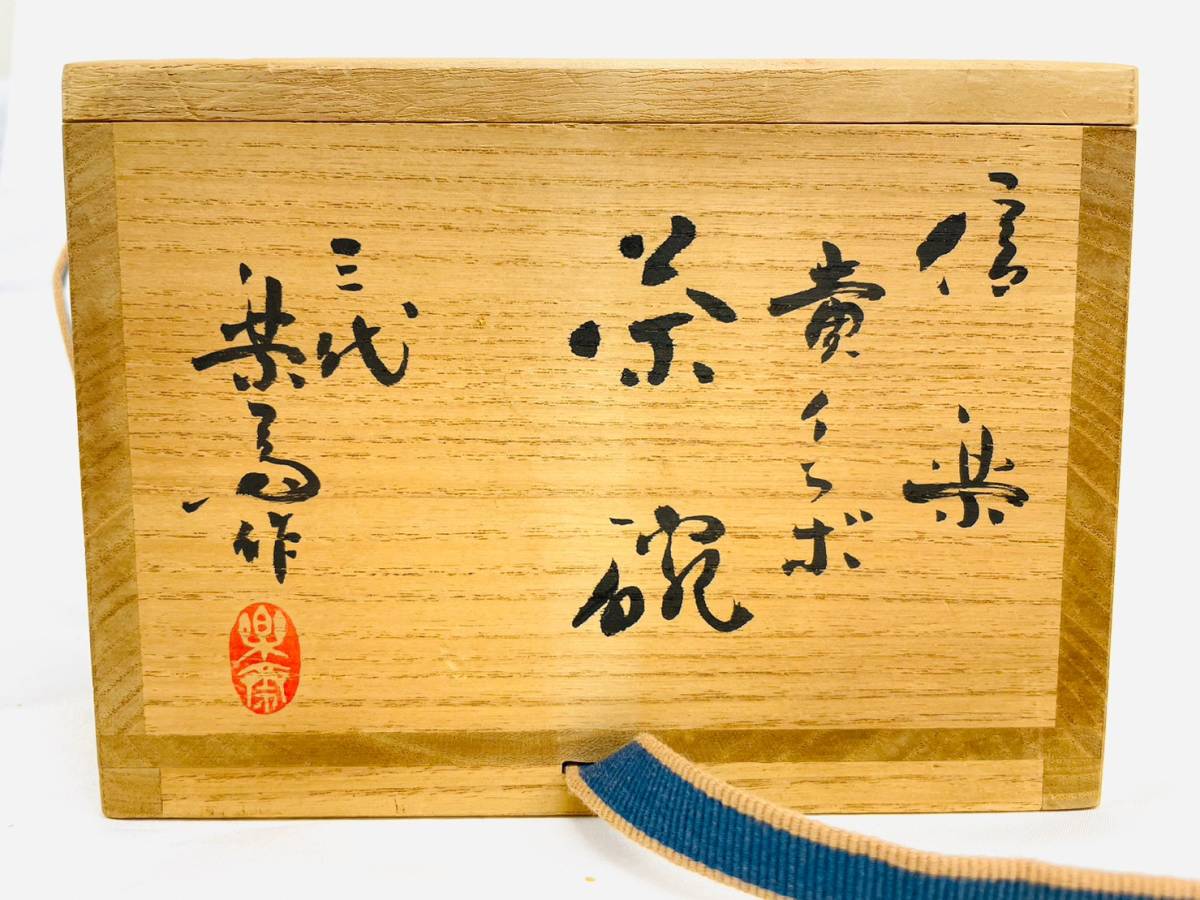 信楽
黄イラボ
茶碗
三代
楽斎作
楽斎